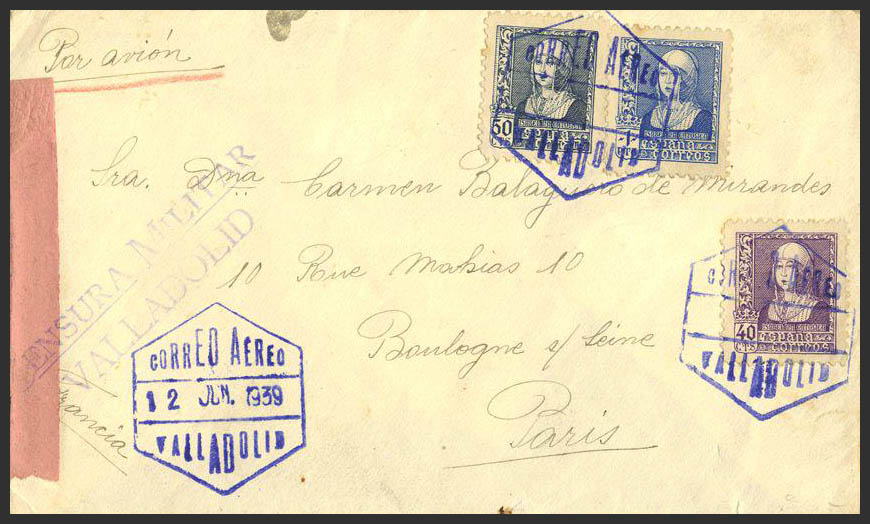 Por avión
CORREO AEREO
VALLADOLID
50
CTS
ESPAÑA
CORREOS
ISABEL LA CATOLICA
1
PTS
ESPAÑA
CORREOS
Sra. Dna Carmen Balaguero de Mirandes
CENSURA MILITAR
VALLADOLID
10 Rue Mahias 10
CORREO AEREO
VALLADOLID
ISABEL LA CATOLICA
40
CTS
ESPAÑA
CORREOS
Boulogne s/ Seine
Paris
Francia
CORREO AÉREO
12 JUN. 1939
VALLADOLID